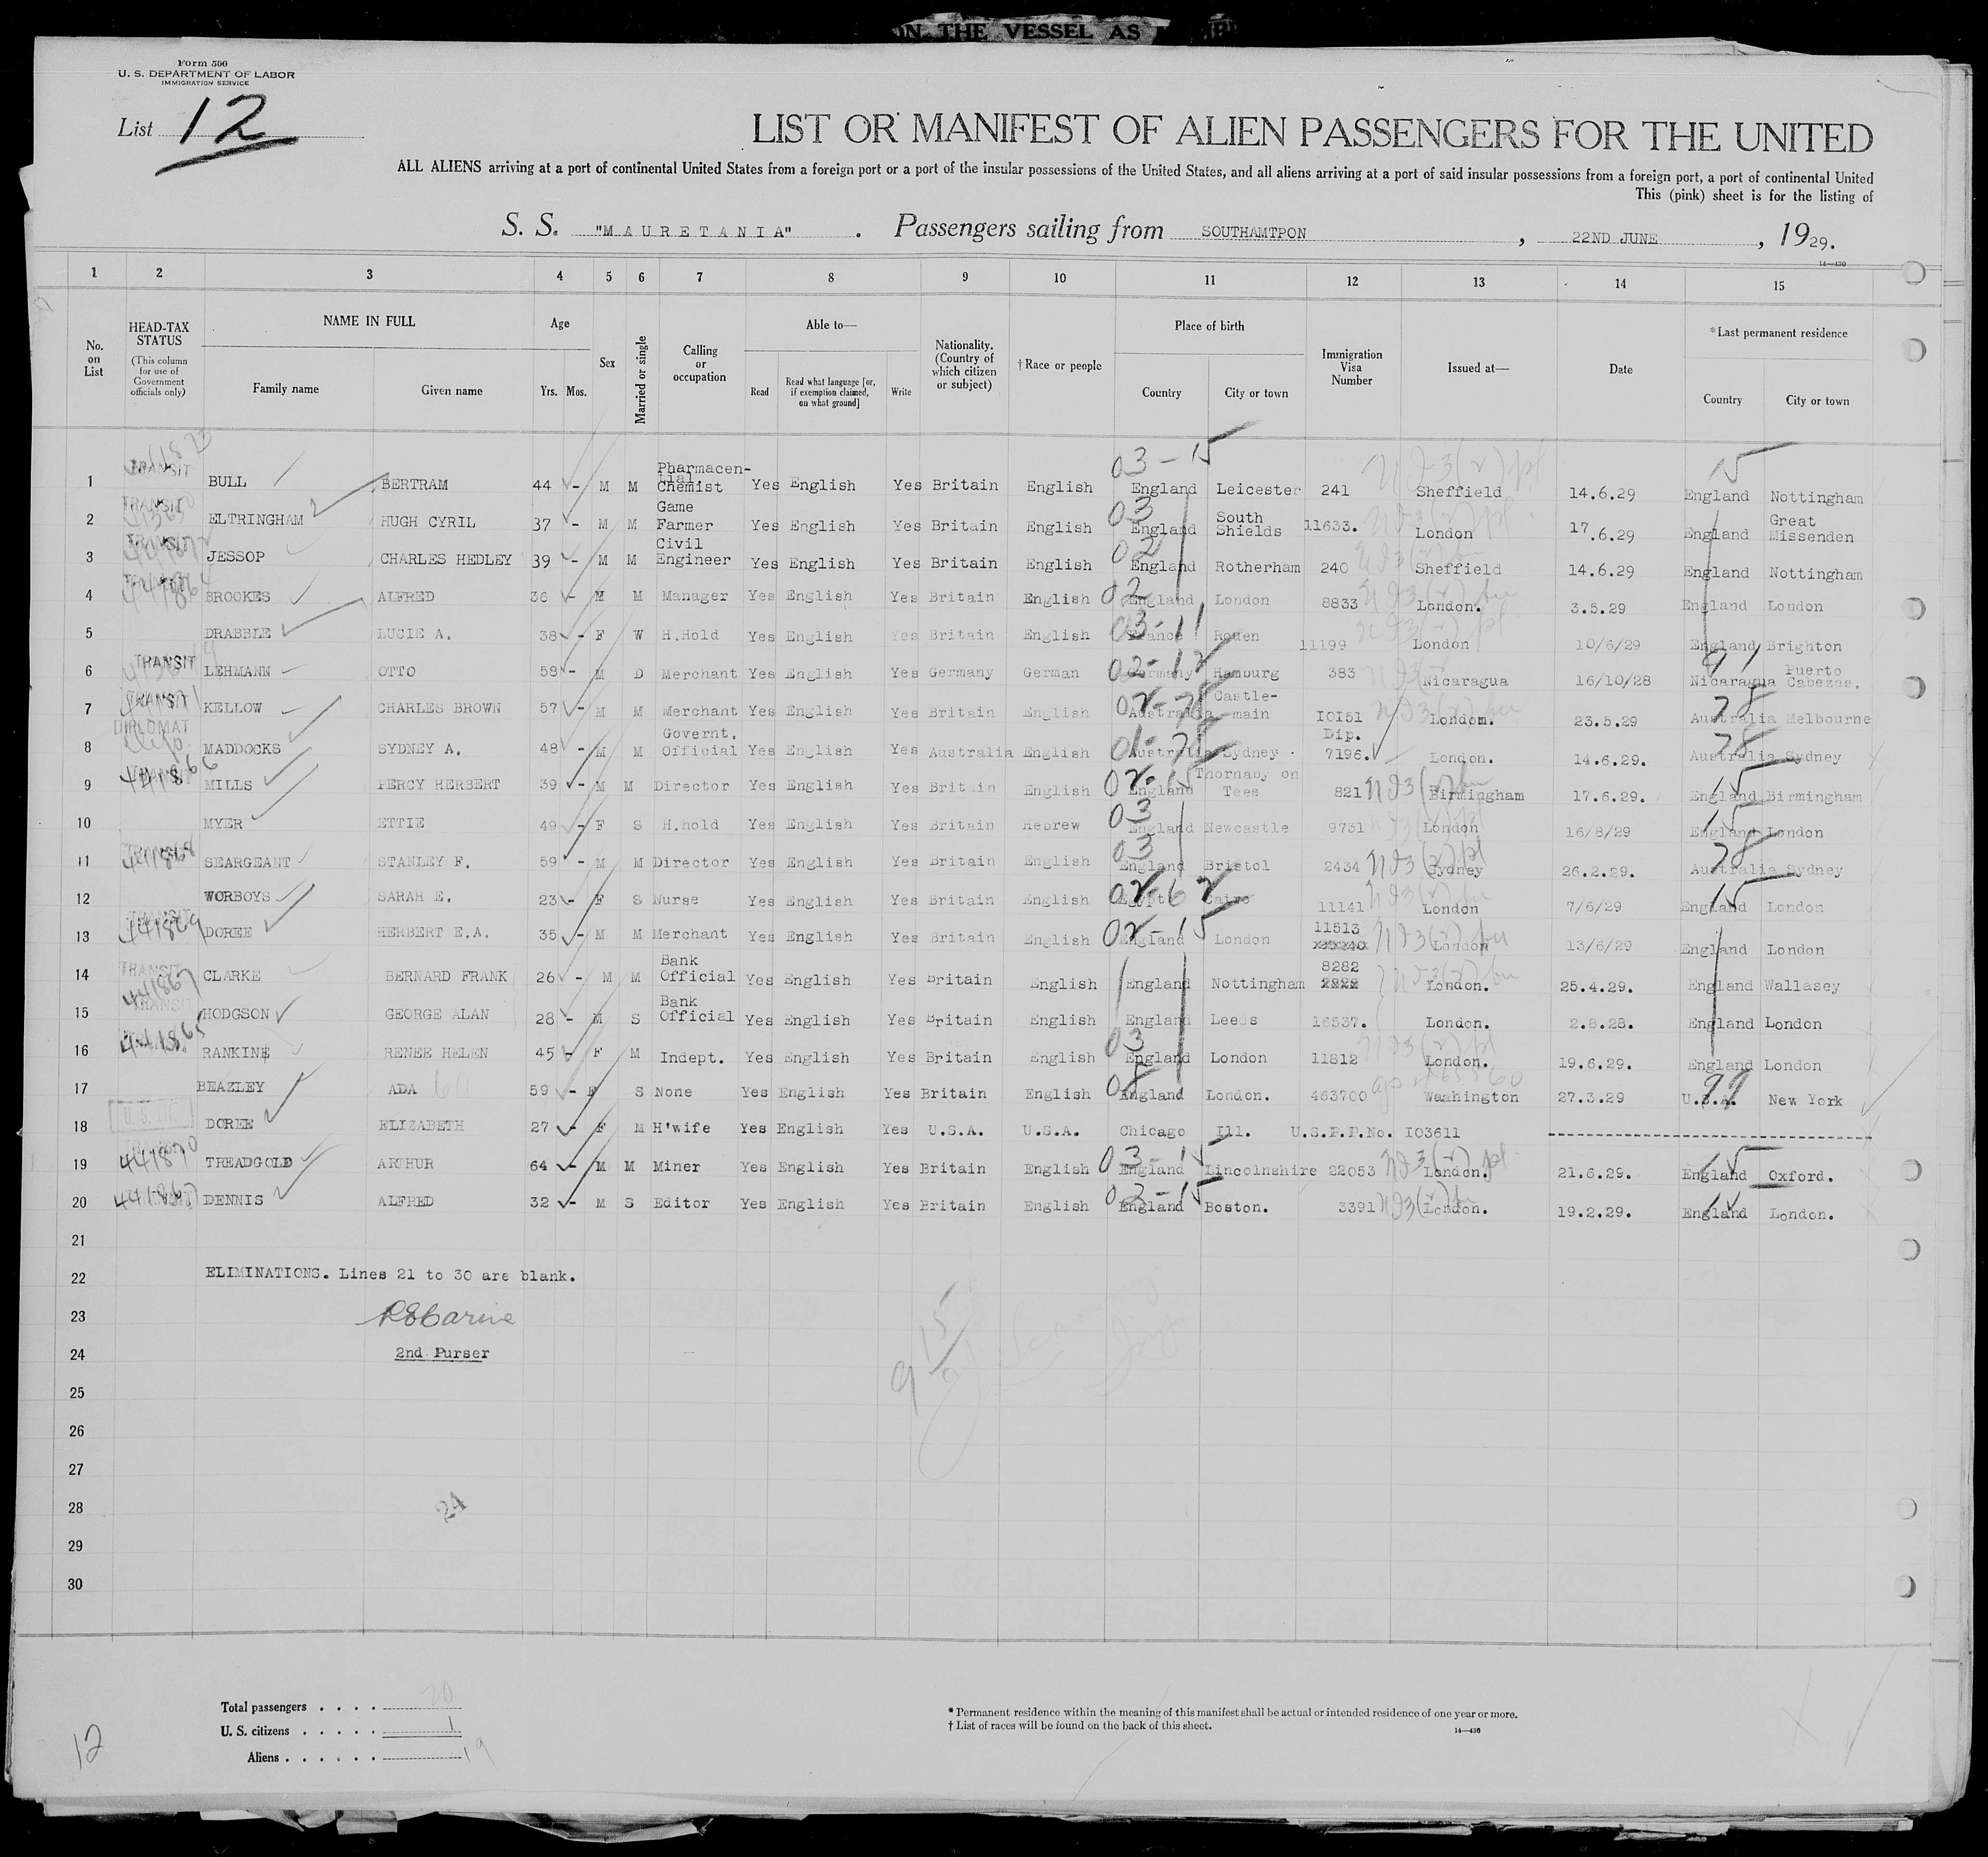 ON THE VESSEL AS
Form 500
U. S. DEPARTMENT OF LABOR
IMMIGRATION SERVICE
List 12
LIST OR MANIFEST OF ALIEN PASSENGERS FOR THE UNITED
ALL ALIENS arriving at a port of continental United States from a foreign port or a port of the insular possessions of the United States, and all aliens arriving at a port of said insular possessions from a foreign port, a port of continental United
This (pink) sheet is for the listing of
S. S. "MAURETANIA". Passengers sailing from SOUTHAMTPON, 22ND JUNE, 1929.
14—430
1 2 3 4 5 6 7 8 9 10 11 12 13 14 15
No. on List
HEAD-TAX STATUS (This column for use of Government officials only)
NAME IN FULL
Family name Given name
Age
Yrs. Mos.
Sex
Married or single
Calling or occupation
Able to—
Read Read what language [or, if exemption claimed, on what ground] Write
Nationality. (Country of which citizen or subject)
†Race or people
Place of birth
Country City or town
Immigration Visa Number
Issued at—
Date
*Last permanent residence
Country City or town
1 TRANSIT BULL BERTRAM 44 - M M Pharmacen-tial. Chemist Yes English Yes Britain English England Leicester 241 Sheffield 14.6.29 England Nottingham
2 TRANSIT ELTRINGHAM HUGH CYRIL 37 - M M Game Farmer Yes English Yes Britain English England South Shields 11633. London 17.6.29 England Great Missenden
3 TRANSIT JESSOP CHARLES HEDLEY 39 - M M Civil Engineer Yes English Yes Britain English England Rotherham 240 Sheffield 14.6.29 England Nottingham
4 BROOKES ALFRED 36 - M M Manager Yes English Yes Britain English England London 8833 London. 3.5.29 England London
5 DRABBLE LUCIE A. 38 - F W H.Hold Yes English Yes Britain English France Rouen 11199 London 10/6/29 England Brighton
6 TRANSIT LEHMANN OTTO 58 - M D Merchant Yes English Yes Germany German Germany Hamburg 383 Nicaragua 16/10/28 Nicaragua Puerto Cabezas.
7 TRANSIT KELLOW CHARLES BROWN 57 - M M Merchant Yes English Yes Britain English Australia Castle-main IOI51 London. 23.5.29 Australia Melbourne
8 DIPLOMAT MADDOCKS SYDNEY A. 48 - M M Governt. Official Yes English Yes Australia English Australia Sydney Dip. 7196. London. 14.6.29. Australia Sydney
9 MILLS PERCY HERBERT 39 - M M Director Yes English Yes Britain English England Thornaby on Tees 821 Birmingham 17.6.29. England Birmingham
10 MYER ETTIE 49 - F S H.hold Yes English Yes Britain Hebrew England Newcastle 9731 London 16/8/29 England London
11 441868 SEARGEANT STANLEY F. 59 - M M Director Yes English Yes Britain English England Bristol 2434 Sydney 26.2.29. Australia Sydney
12 WORBOYS SARAH E. 23 - F S Nurse Yes English Yes Britain English Egypt Cairo 11141 London 7/6/29 England London
13 TRANSIT 441869 DOREE HERBERT E.A. 35 - M M Merchant Yes English Yes Britain English England London 11513 London 13/6/29 England London
14 TRANSIT 441867 CLARKE BERNARD FRANK 26 - M M Bank Official Yes English Yes Britain English England Nottingham 8282 London. 25.4.29. England Wallasey
15 TRANSIT HODGSON GEORGE ALAN 28 - M S Bank Official Yes English Yes Britain English England Leeds 16537. London. 2.8.28. England London
16 441865 RANKINE RENEE HELEN 45 - F M Indept. Yes English Yes Britain English England London 11812 London. 19.6.29. England London
17 BEAZLEY ADA 59 - F S None Yes English Yes Britain English England London. 463700 Washington 27.3.29 U.S.A. New York
18 DOREE ELIZABETH 27 - F M H'wife Yes English Yes U.S.A. U.S.A. Chicago Ill. U.S.P.P.No. IO3611
19 441870 TREADGOLD ARTHUR 64 - M M Miner Yes English Yes Britain English England Lincolnshire 22053 London. 21.6.29. England Oxford.
20 DENNIS ALFRED 32 - M S Editor Yes English Yes Britain English England Boston. 3391 London. 19.2.29. England London.
21
22 ELIMINATIONS. Lines 21 to 30 are blank.
23
24 2nd Purser
25
26
27
28 24
29
30
Total passengers . . . . 20
U. S. citizens . . . . . 1
Aliens . . . . . . 19
12
* Permanent residence within the meaning of this manifest shall be actual or intended residence of one year or more.
† List of races will be found on the back of this sheet.
14—430